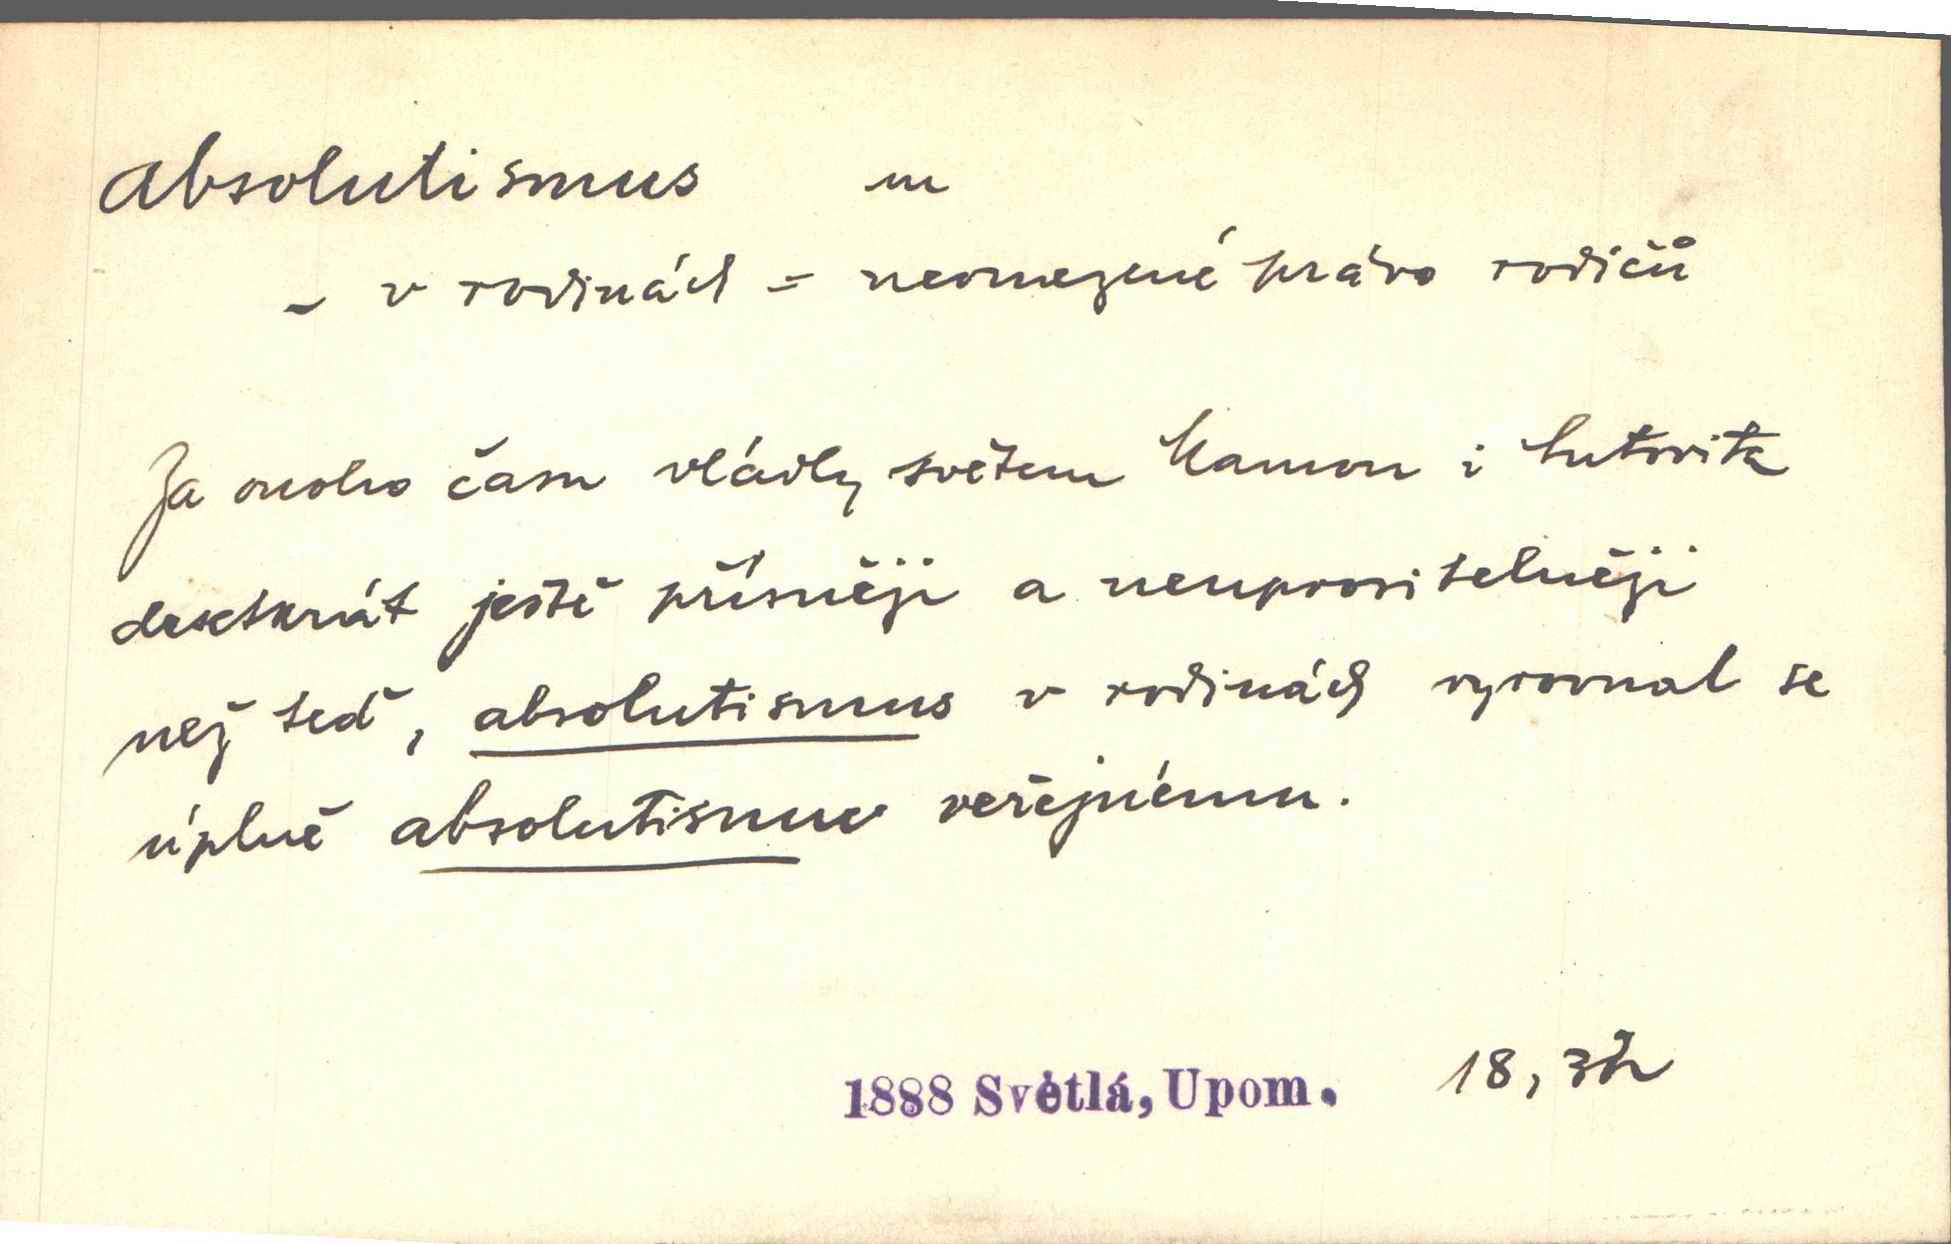 absolutismus m
- v rodinách = neomezené právo rodičů
Za onoho času vládly světem Mamon i Autorita
desetkrát ještě přísněji a neuprositelněji
než teď, absolutismus v rodinách vyrovnal se
úplně absolutismu veřejnému.
1888 Světlá, Upom. 18, zh